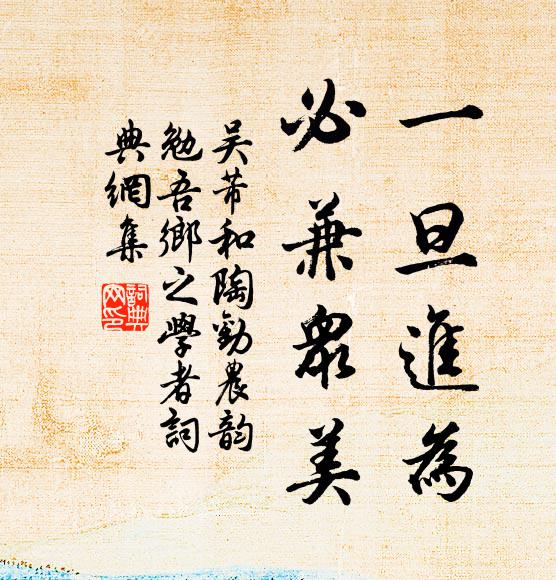 一旦進為
必兼衆美
吴芾和陶勸農韵
勉吾鄉之學者詞
典網集
詞典
网印